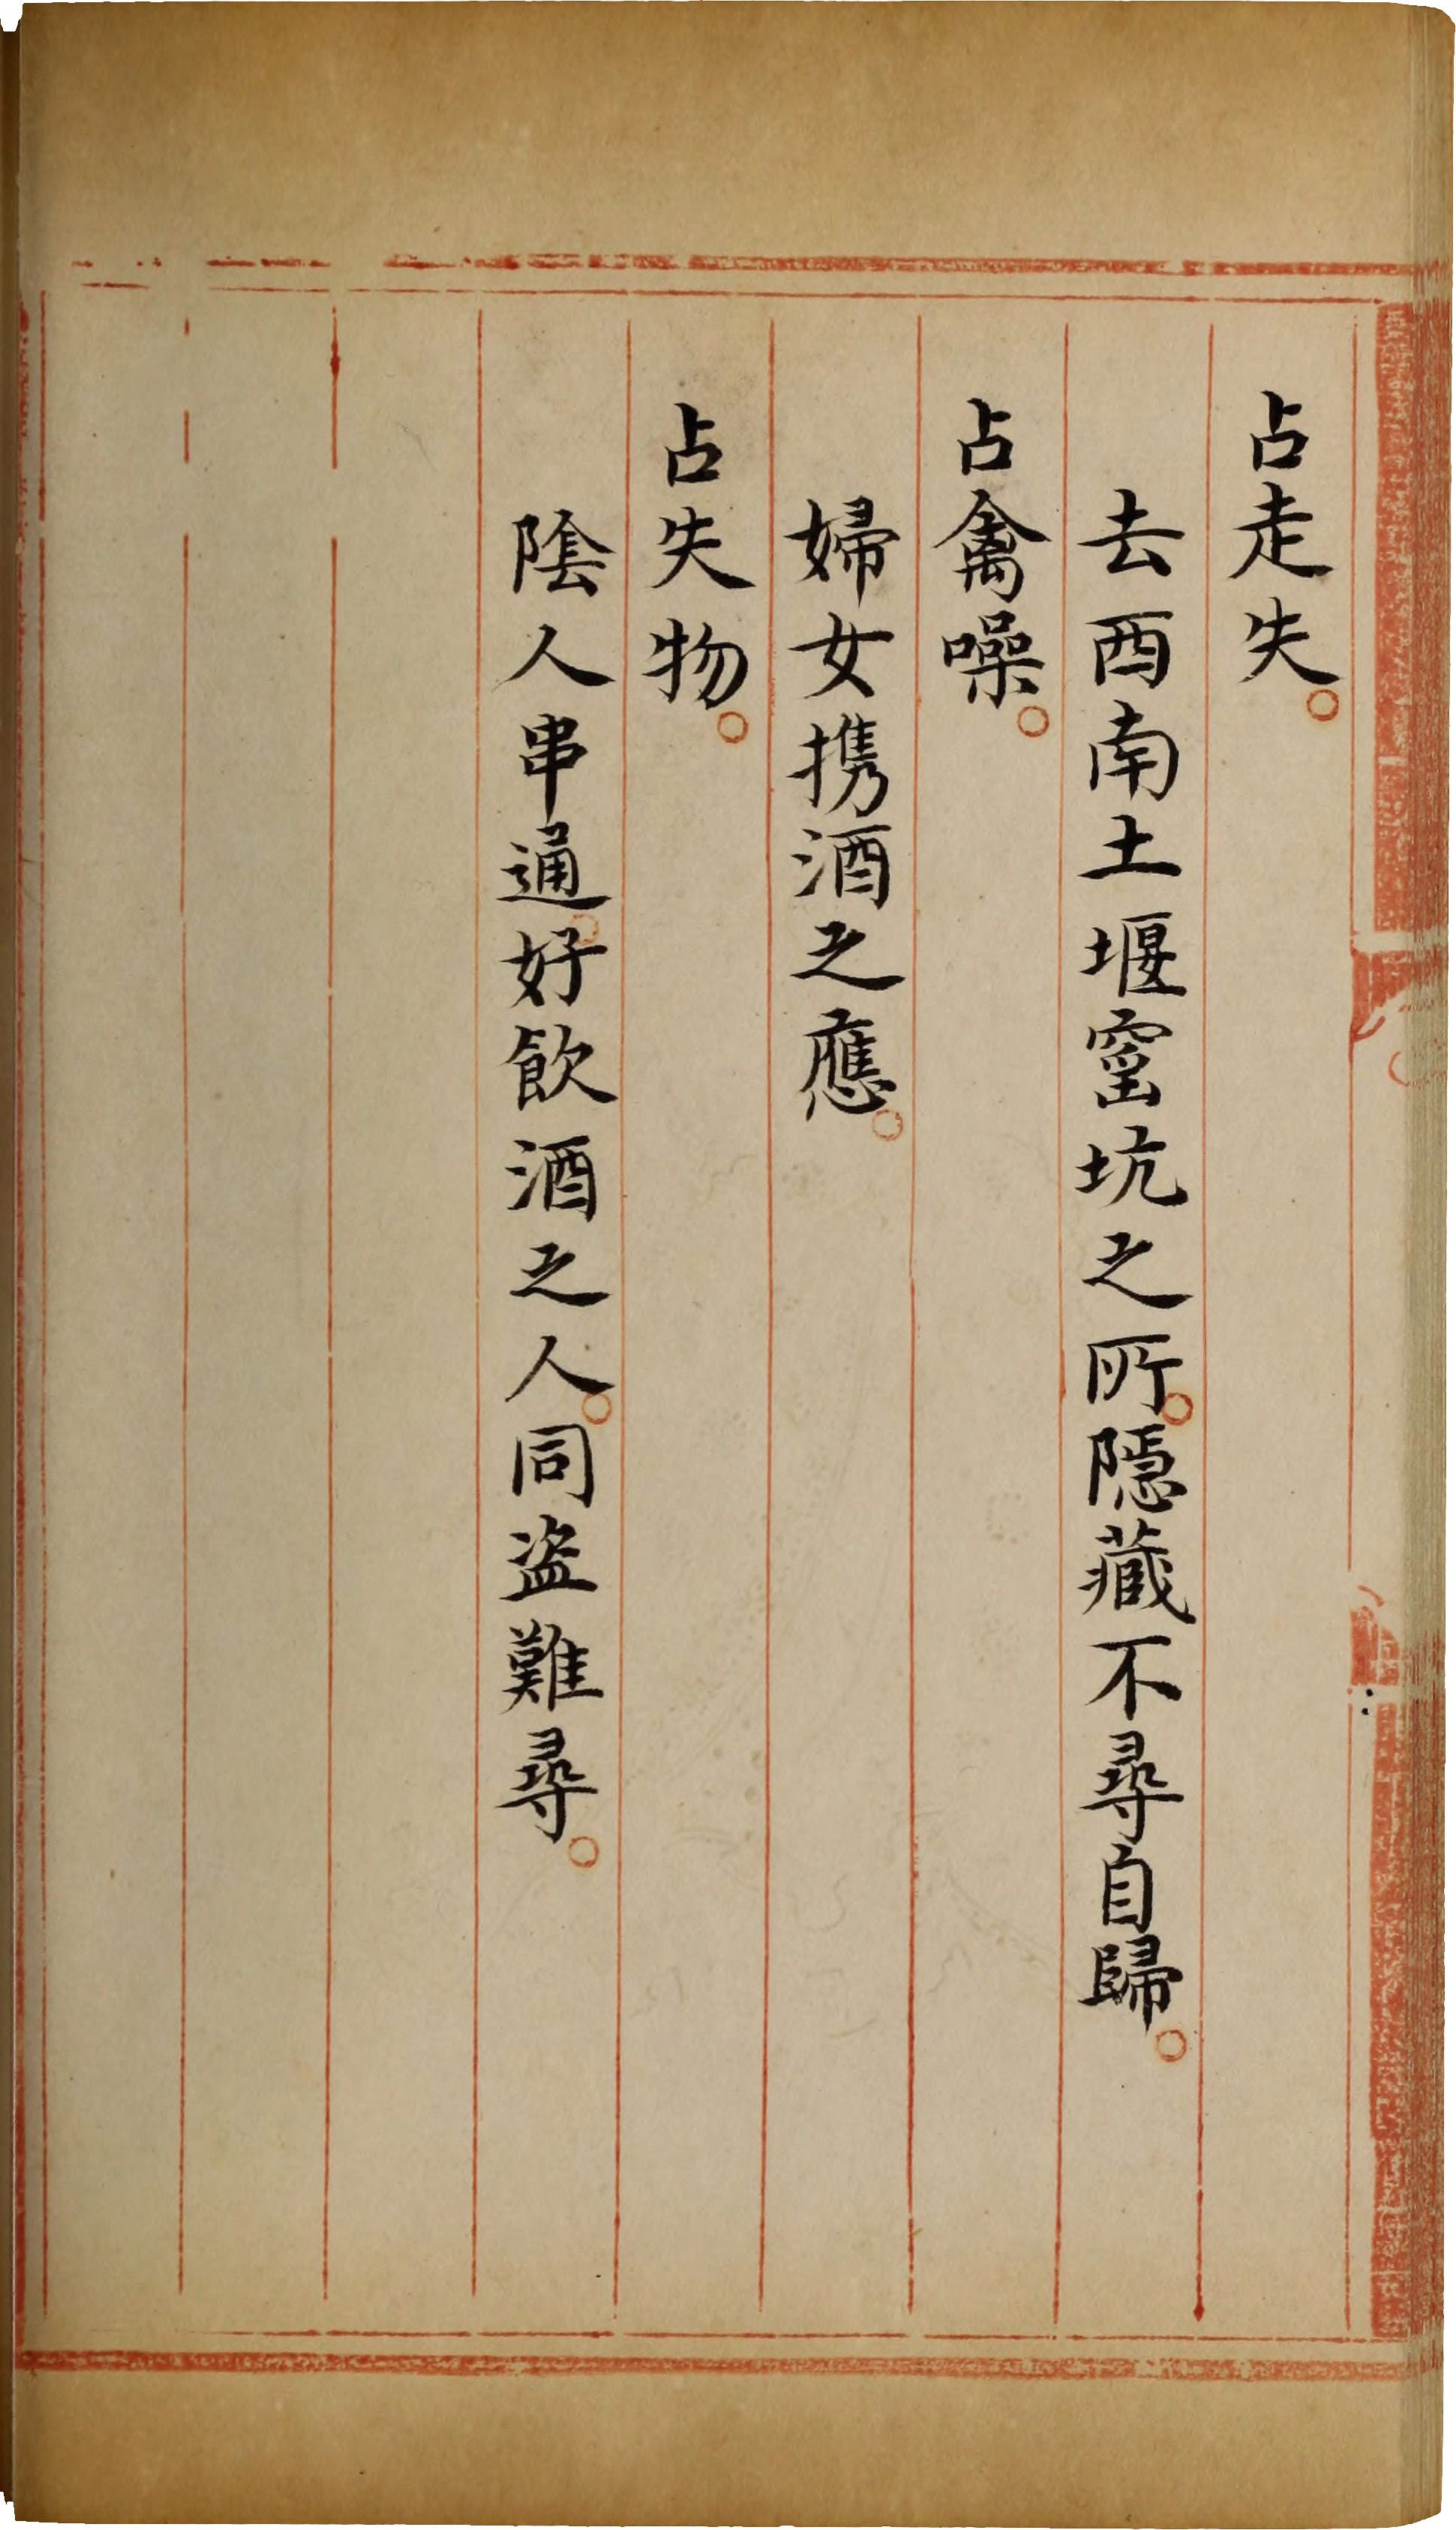 占走失。
去酉南土堰窰坑之所。隱藏不尋自歸。
占禽噪。
婦女携酒之應。
占失物。
陰人串通。好飲酒之人。同盜難尋。